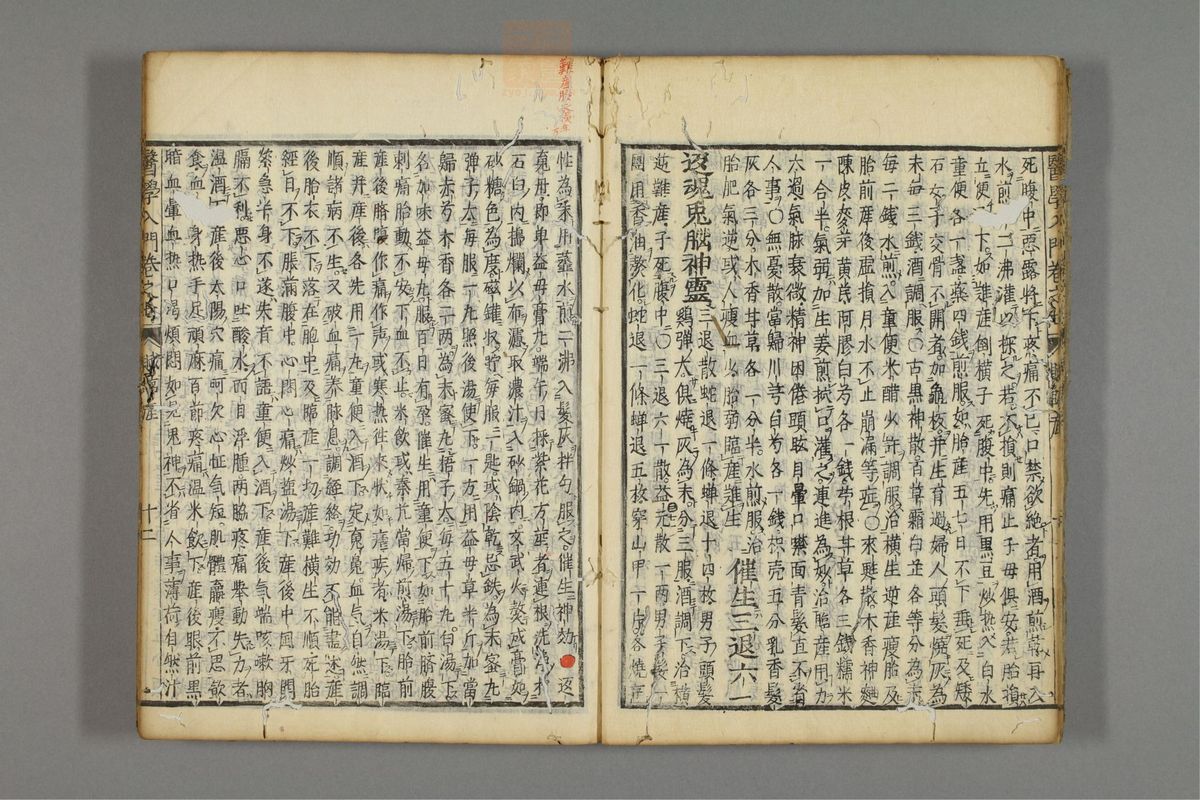 死腹中惡露將下疼痛不已口禁欲絕者用酒煎乾再入
水煎二沸灌以探之若不損則痛止子母俱安若胎損
立便下如進產倒橫子死腹中先用黑豆炒熱入白水
童便各一盞藥四錢煎服如胎產五七日不下垂死及矮
石女子交骨不開者加龜板并生育過婦人頭髮燒灰為
末每三錢酒調服○古黑神散百草霜白芷各等分為末
每二錢水煎入童便米醋少許調服治橫生逆產瘦胎及
胎前產後虛損月水不止崩漏等症○來甦散木香神麯
陳皮麥芽黃芪阿膠白芍各一錢苧根甘草各三錢糯米
一合半氣弱加生姜煎拭口灌之連進為妙治臨產用力
太過氣脉衰微精神困倦頭眩目暈口噤面青髮直不省
人事○無憂散當歸川芎白芍各一錢枳壳五分乳香髮
灰各三分木香甘草各一分半水煎服治
胎肥氣逆或人瘦血少胎弱臨產進生
催生三退六一
返魂兎腦神靈
三退散蛇退一條蟬退十四枚男子頭髮
鷄彈大俱燒灰為末分三服酒調下治橫
逆難產子死腹中○三退六一散益元散一兩男子髮一
團用香油熬化蛇退一條蟬退五枚穿山甲一片各燒存
性為末用虀水煎二沸入髮灰拌勻服之催生神効●返
䰟丹即單益母膏丸端午日採紫花方莖者連根洗淨於
石臼內搗爛以布濾取濃汁入砂鍋內文武火熬成膏如
砂糖色為度磁罐收貯每服一匙或陰乾忌鉄為末蜜丸
彈子大每服一丸照後湯使下一方用益母草半斤加當
歸赤芍木香各二兩為末蜜丸梧子大每五十丸白湯下
名加味益母丸服百日有孕催生用童便下如胎前臍腹
刺痛胎動不安下血不止米飲或秦艽當歸煎湯下胎前
產後臍腹作痛作声或寒熱往來狀如瘧疾者米湯下臨
產并產後各先用一丸童便入酒下定䰟魄血氣自然調
順諸病不生又破血痛養脉息調經絡功効不能盡述產
後胎衣不下落在胞中及臨產一切產難橫生不順死胎
經日不下脹滿腹中心悶心痛炒盐湯下產後中風牙關
緊急半身不遂失音不語童便入酒下產後气喘咳嗽胸
膈不利惡心口吐酸水面目浮腫两脇疼痛舉動失力者
温酒下產後太陽穴痛呵欠心怔气短肌體羸瘦不思飲
食血風身熱手足頑麻百節疼痛温米飲下產後眼前黑
暗血暈血热口渴煩悶如見鬼神不省人事薄荷自然汁
醫學入門卷之
十二